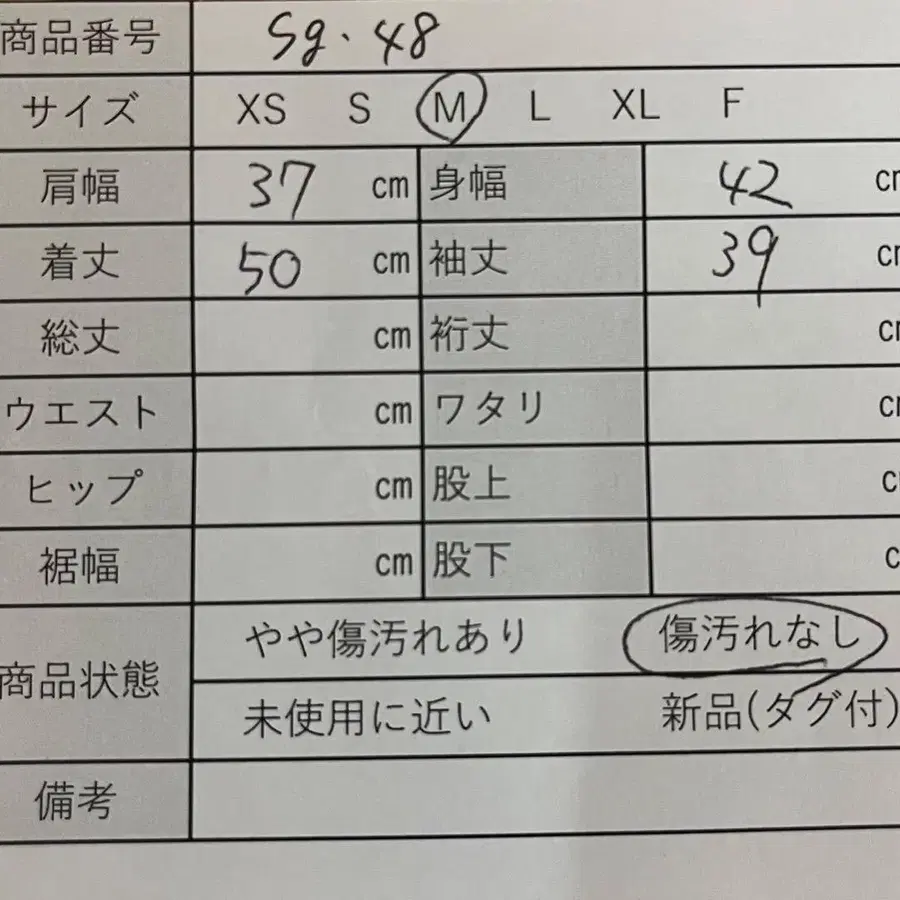 商品番号 Sg・48
サイズ XS S M L XL F
肩幅 37 cm 身幅 42 cm
着丈 50 cm 袖丈 39 cm
総丈 cm 裄丈 cm
ウエスト cm ワタリ cm
ヒップ cm 股上 c
裾幅 cm 股下 c
商品状態 やや傷汚れあり 傷汚れなし
未使用に近い 新品(タグ付)
備考